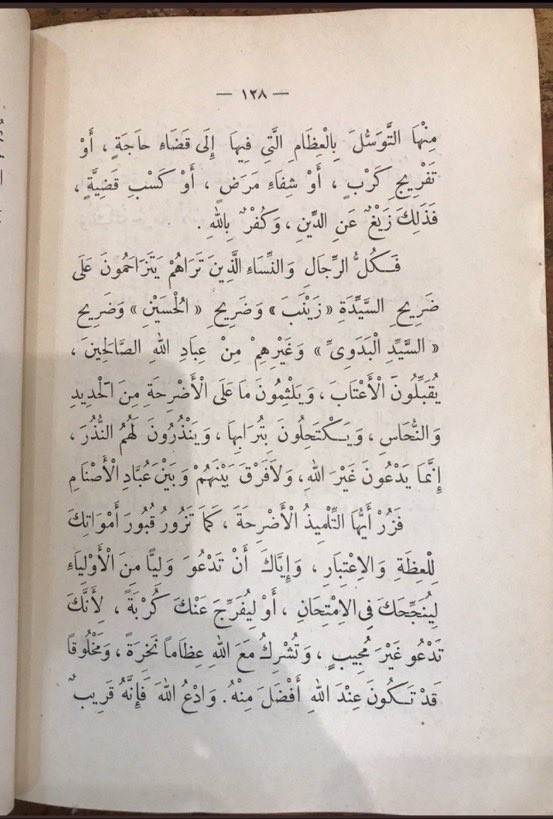 — ١٢٨ —
مِنْهَا التَّوَسُّلَ بِالْعِظَامِ الَّتِي فِيهَا إِلَى قَضَاءِ حَاجَةٍ ، أَوْ
تَفْرِيجِ كَرْبٍ ، أَوْ شِفَاءِ مَرَضٍ ، أَوْ كَسْبِ قَضِيَّةٍ ،
فَذَلِكَ زَيْغٌ عَنِ الدِّينِ ، وَكُفْرٌ بِاللهِ .
فَكُلُّ الرِّجَالِ وَالنِّسَاءِ الَّذِينَ تَرَاهُمْ يَتَزَاحَمُونَ عَلَى
ضَرِيحِ السَّيِّدَةِ « زَيْنَبَ » وَضَرِيحِ « الْحُسَيْنِ » وَضَرِيحِ
« السَّيِّدِ الْبَدَوِىِّ » وَغَيْرِهِمْ مِنْ عِبَادِ اللهِ الصَّالِحِينَ ،
يُقَبِّلُونَ الْأَعْتَابَ ، وَيَلْثِمُونَ مَا عَلَى الْأَضْرِحَةِ مِنَ الْحَدِيدِ
وَالنُّحَاسِ ، وَيَكْتَحِلُونَ بِتُرَابِهَا ، وَيَنْذُرُونَ لَهُمُ النُّذُرَ ،
إِنَّمَا يَدْعُونَ غَيْرَ اللهِ، وَلَا فَرْقَ بَيْنَهُمْ وَبَيْنَ عُبَّادِ الْأَصْنَامِ
فَزُرْ أَيُّهَا التِّلْمِيذُ الْأَضْرِحَةَ ، كَمَا تَزُورُ قُبُورَ أَمْوَاتِكَ
لِلْعِظَةِ وَالِاعْتِبَارِ ، وَإِيَّاكَ أَنْ تَدْعُوَ وَلِيًّا مِنَ الْأَوْلِيَاءِ
لِيُنَجِّحَكَ فِى الِامْتِحَانِ ، أَوْ لِيُفَرِّجَ عَنْكَ كُرْبَةً ، لِأَنَّكَ
تَدْعُو غَيْرَ مُجِيبٍ ، وَتُشْرِكُ مَعَ اللهِ عِظَاماً نَخِرَةً ، وَمَخْلُوقًا
قَدْ تَكُونَ عِنْدَ اللهِ أَفْضَلَ مِنْهُ. وَادْعُ اللهَ فَإِنَّهُ قَرِيبٌ